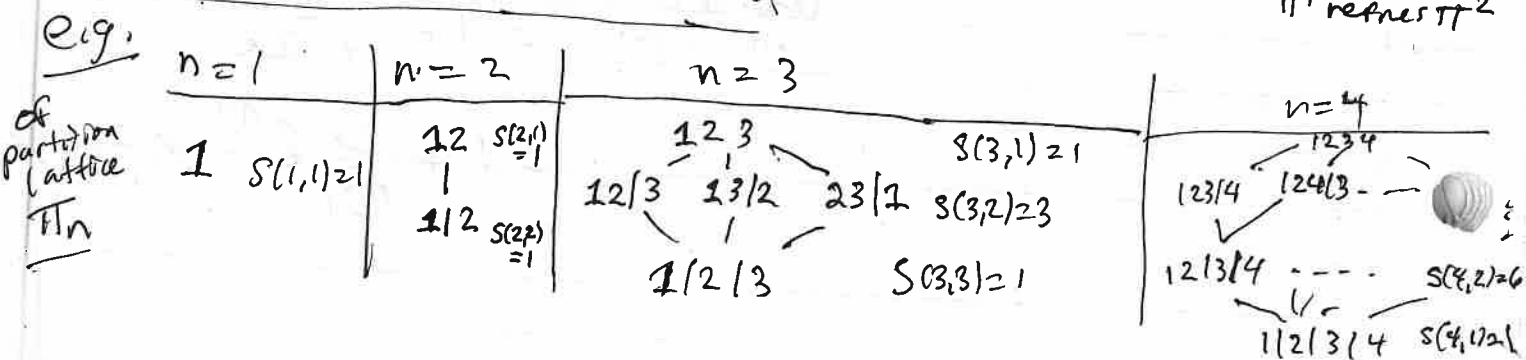 π¹ refines π²
e.g. of partition lattice Πn
n=1 | n=2 | n=3 | n=4
1 S(1,1)=1
12 S(2,1)=1
1/2 S(2,2)=1
123 S(3,1)=1
12/3 13/2 23/1 S(3,2)=3
1/2/3 S(3,3)=1
1234
123/4 124/3
12/3/4 ---- S(4,2)=6
1/2/3/4 S(4,1)=1